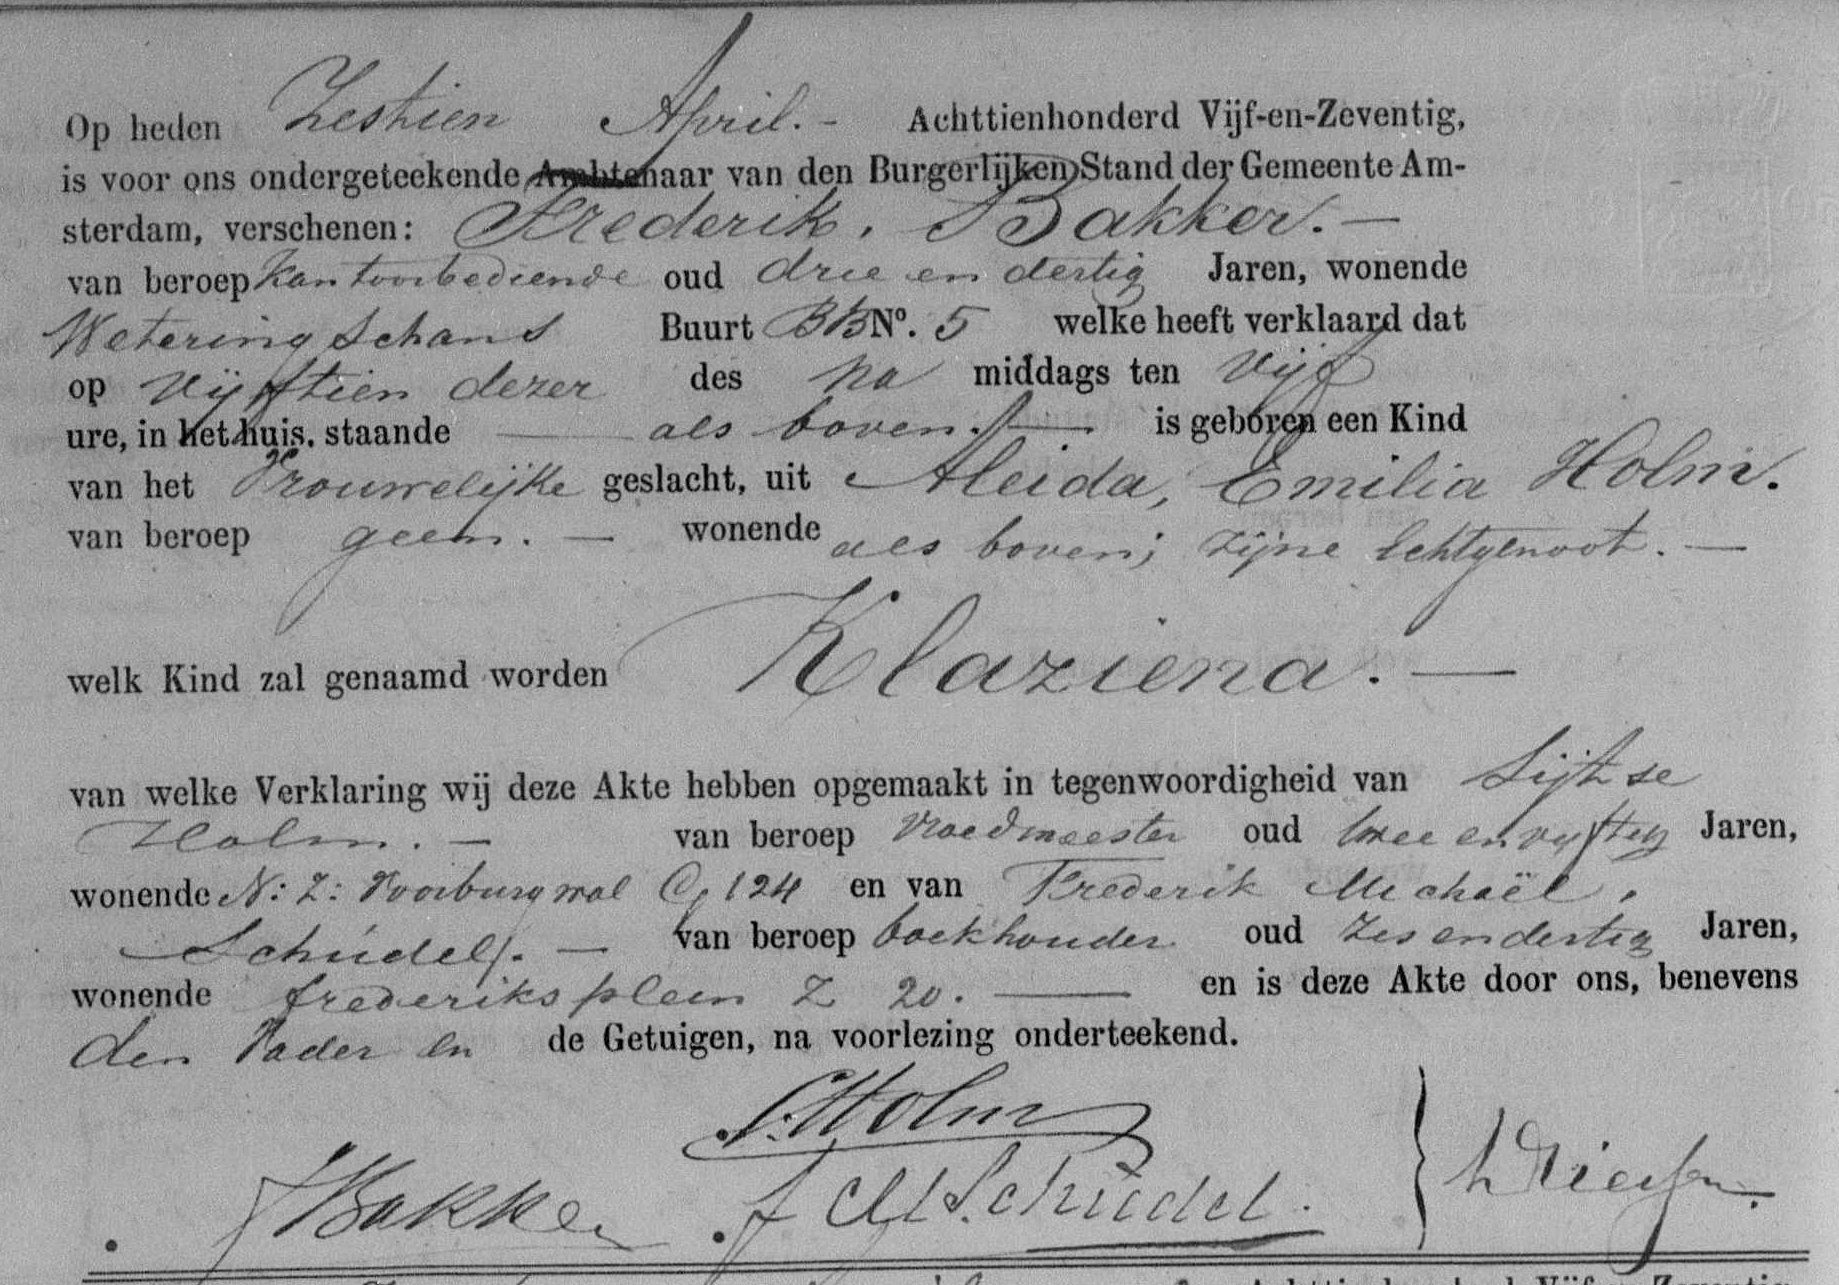 Op heden Zestien April. - Achttienhonderd Vijf-en-Zeventig,
is voor ons ondergeteekende Ambtenaar van den Burgerlijken Stand der Gemeente Am-
sterdam, verschenen: Frederik, Bakker. —
van beroep Kantoorbediende oud drie en dertig Jaren, wonende
Wetering Schans Buurt BB No. 5 welke heeft verklaard dat
op vijftien dezer des na middags ten vijf
ure, in het huis, staande — als boven. — is geboren een Kind
van het Vrouwelijke geslacht, uit Aleida, Emilia Holm.
van beroep geen. — wonende als boven; zijne Echtgenoot. —
welk Kind zal genaamd worden Klaziena. —
van welke Verklaring wij deze Akte hebben opgemaakt in tegenwoordigheid van Sijtse
Holm. — van beroep Vroedmeester oud twee en vijftig Jaren,
wonende N: Z: Voorburgwal C, 124 en van Frederik Michaël,
Schúdel. — van beroep boekhouder oud Zes en dertig Jaren,
wonende frederiksplein Z 20. — en is deze Akte door ons, benevens
den Vader en de Getuigen, na voorlezing onderteekend.
S. Holm
FBakker
f M Schúdel.